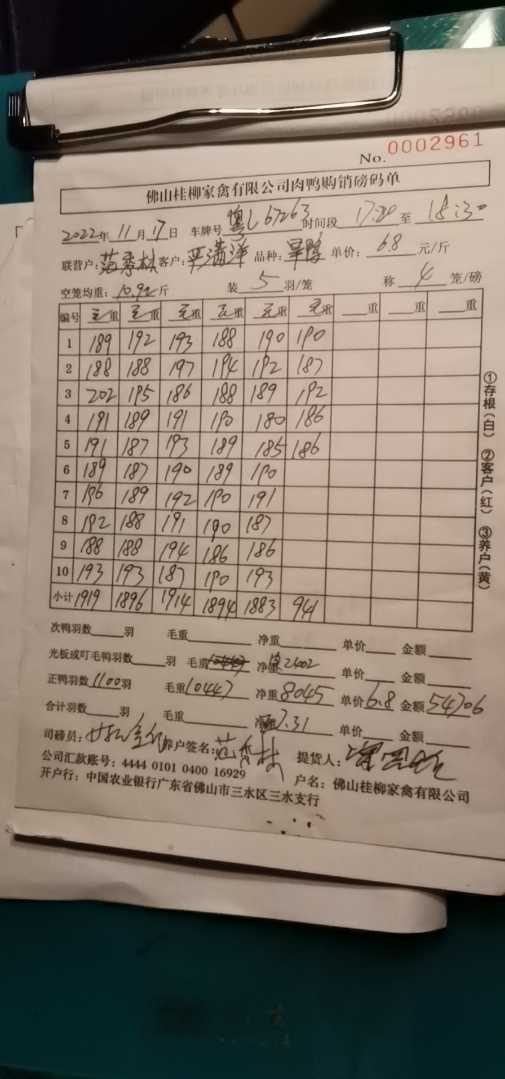 No. 0002961
佛山桂柳家禽有限公司肉鸭购销磅码单
2022年 11 月 17 日 车牌号 粤L67263 时间段 17:20 至 18:30
联营户: 范秀林 客户: 品种: 单价: 6.8 元/斤
空笼均重: 10.92 斤 装 5 羽/笼 称 4 笼/磅
编号 毛重 毛重 毛重 毛重 毛重 毛重 重 重 重
1 189 192 193 188 190 190
2 188 188 197 194 192 187
3 202 195 186 188 189 192
4 191 189 191 190 180 186
5 191 187 193 189 185 186
6 189 187 190 189 190
7 196 189 192 190 191
8 192 188 191 190 187
9 188 188 194 186 186
10 193 193 187 190 193
小计 1919 1896 1914 1894 1883 941
次鸭羽数 羽 毛重 净重 单价 金额
光板或叮毛鸭羽数 羽 毛重 净重 2402 单价 金额
正鸭羽数 1100 羽 毛重 10447 净重 8045 单价 6.8 金额 54706
合计羽数 羽 毛重 净重 7.31 单价 金额
司磅员: 养户签名: 范秀林 提货人:
公司汇款账号: 4444 0101 0400 16929 户名: 佛山桂柳家禽有限公司
开户行: 中国农业银行广东省佛山市三水区三水支行
①存根(白) ②客户(红) ③养户(黄)